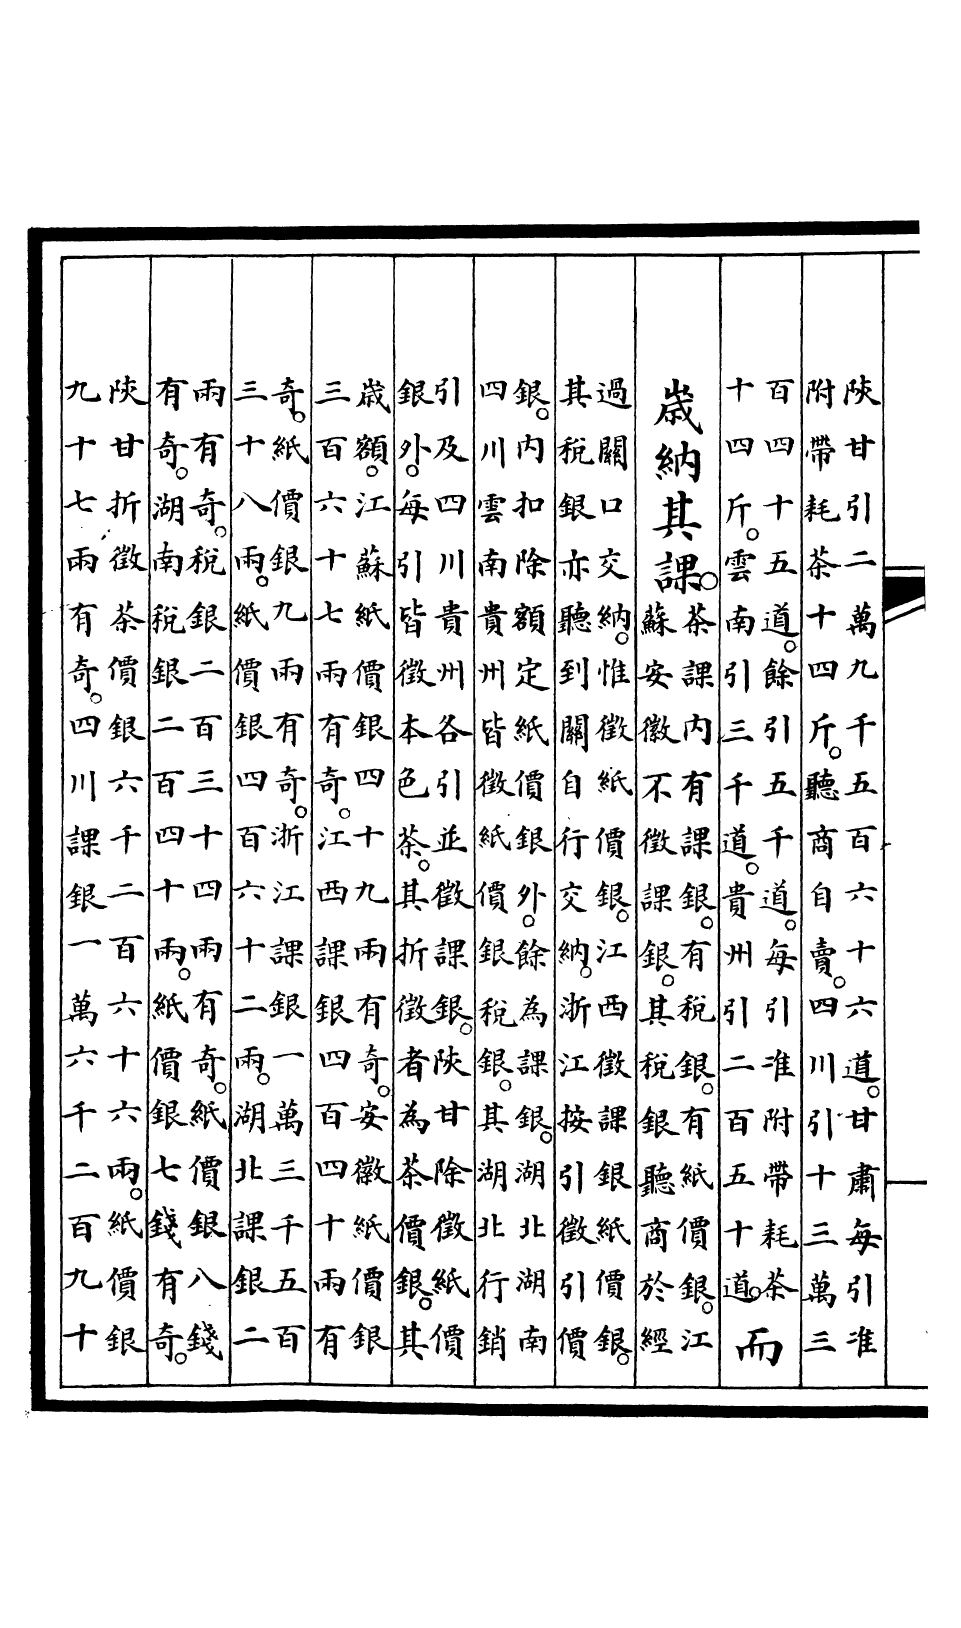 陝甘引二萬九千五百六十六道。甘肅每引准
附帶耗茶十四斤。聽商自賣。四川引十三萬三
百四十五道。餘引五千道。每引准附帶耗茶
十四斤。雲南引三千道。貴州引二百五十道。而
歲納其課。
茶課內有課銀。有税銀。有紙價銀。江
蘇安徽不徵課銀。其税銀聽商於經
過關口交納。惟徵紙價銀。江西徵課銀紙價銀。
其税銀亦聽到關自行交納。浙江按引徵引價
銀。內扣除額定紙價銀外。餘為課銀。湖北湖南
四川雲南貴州皆徵紙價銀税銀。其湖北行銷
引及四川貴州各引並徵課銀。陝甘除徵紙價
銀外。每引皆徵本色茶。其折徵者為茶價銀。其
歲額。江蘇紙價銀四十九兩有奇。安徽紙價銀
三百六十七兩有奇。江西課銀四百四十兩有
奇。紙價銀九兩有奇。浙江課銀一萬三千五百
三十八兩。紙價銀四百六十二兩。湖北課銀二
兩有奇。税銀二百三十四兩有奇。紙價銀八錢
有奇。湖南税銀二百四十兩。紙價銀七錢有奇。
陝甘折徵茶價銀六千二百六十六兩。紙價銀
九十七兩有奇。四川課銀一萬六千二百九十